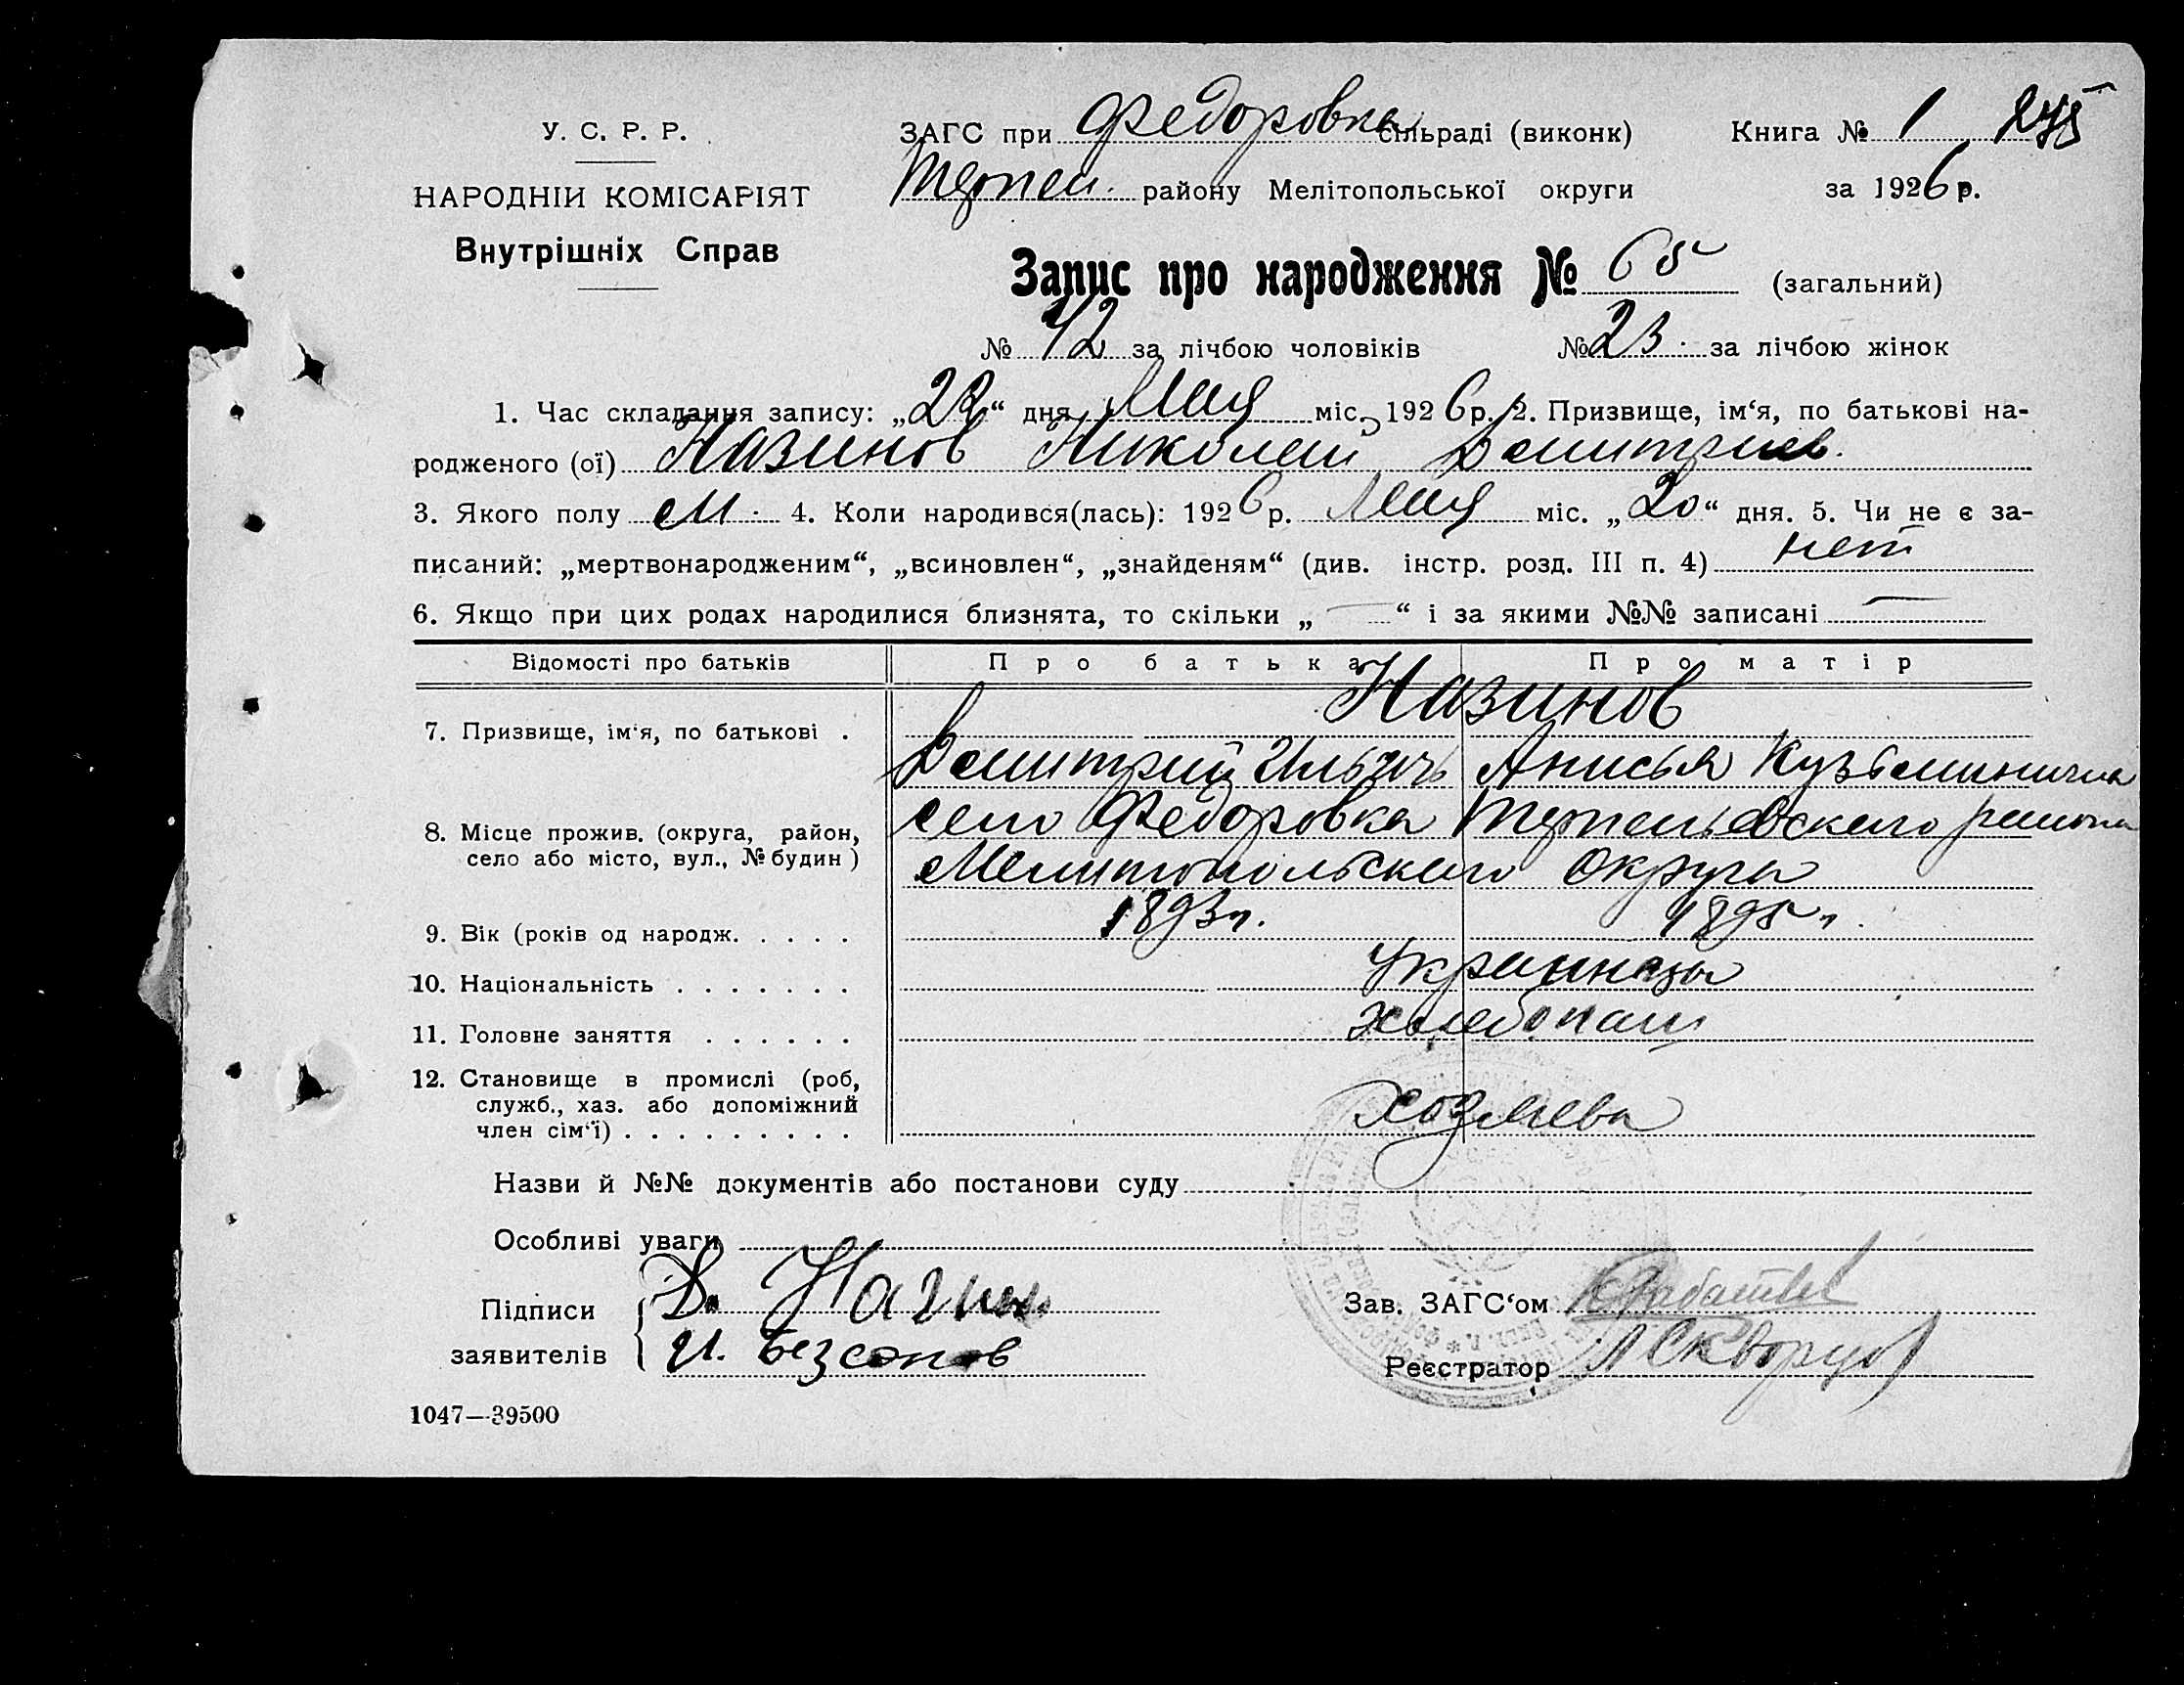 У. С. Р. Р.
НАРОДНІЙ КОМІСАРІЯТ
Внутрішніх Справ
ЗАГС при Федоровка сільраді (виконк) Книга № 1
Терпен. району Мелітопольської округи за 1926 р.
Запис про народження № 65 (загальний)
№ 42 за лічбою чоловіків № 23. за лічбою жінок
1. Час складання запису: „22“ дня Мая міс. 1926 р. 2. Призвище, ім‘я, по батькові на-
родженого (ої) Назинов Николай Дмитриев.
3. Якого полу М. 4. Коли народився(лась): 1926 р. Мая міс. „20“ дня. 5. Чи не є за-
писаний: „мертвонародженим“, „всиновлен“, „знайденям“ (див. інстр. розд. III п. 4) нет
6. Якщо при цих родах народилися близнята, то скільки „ — “ і за якими №№ записані —
Відомості про батьків Про батька Про матір
7. Призвище, ім‘я, по батькові . Назинов
Дмитрий Ильичь Анисья Кузьминична
8. Місце прожив. (округа, район, село або місто, вул., № будин) село Федоровка Терпеньевского района
Мелитопольского Округа
9. Вік (років од народж. . . . . 1893 г. 1895 г.
10. Національність . . . . . . . Украинцы
11. Головне заняття . . . . . . хлебопаш
12. Становище в промислі (роб, служб., хаз. або допоміжний член сім‘ї) . . . . . . . . . хозяева
Назви й №№ документів або постанови суду
Особливі уваги
Підписи заявителів
Д.
И. Безсонов
Зав. ЗАГС‘ом
Реєстратор Скворцов
1047—39500